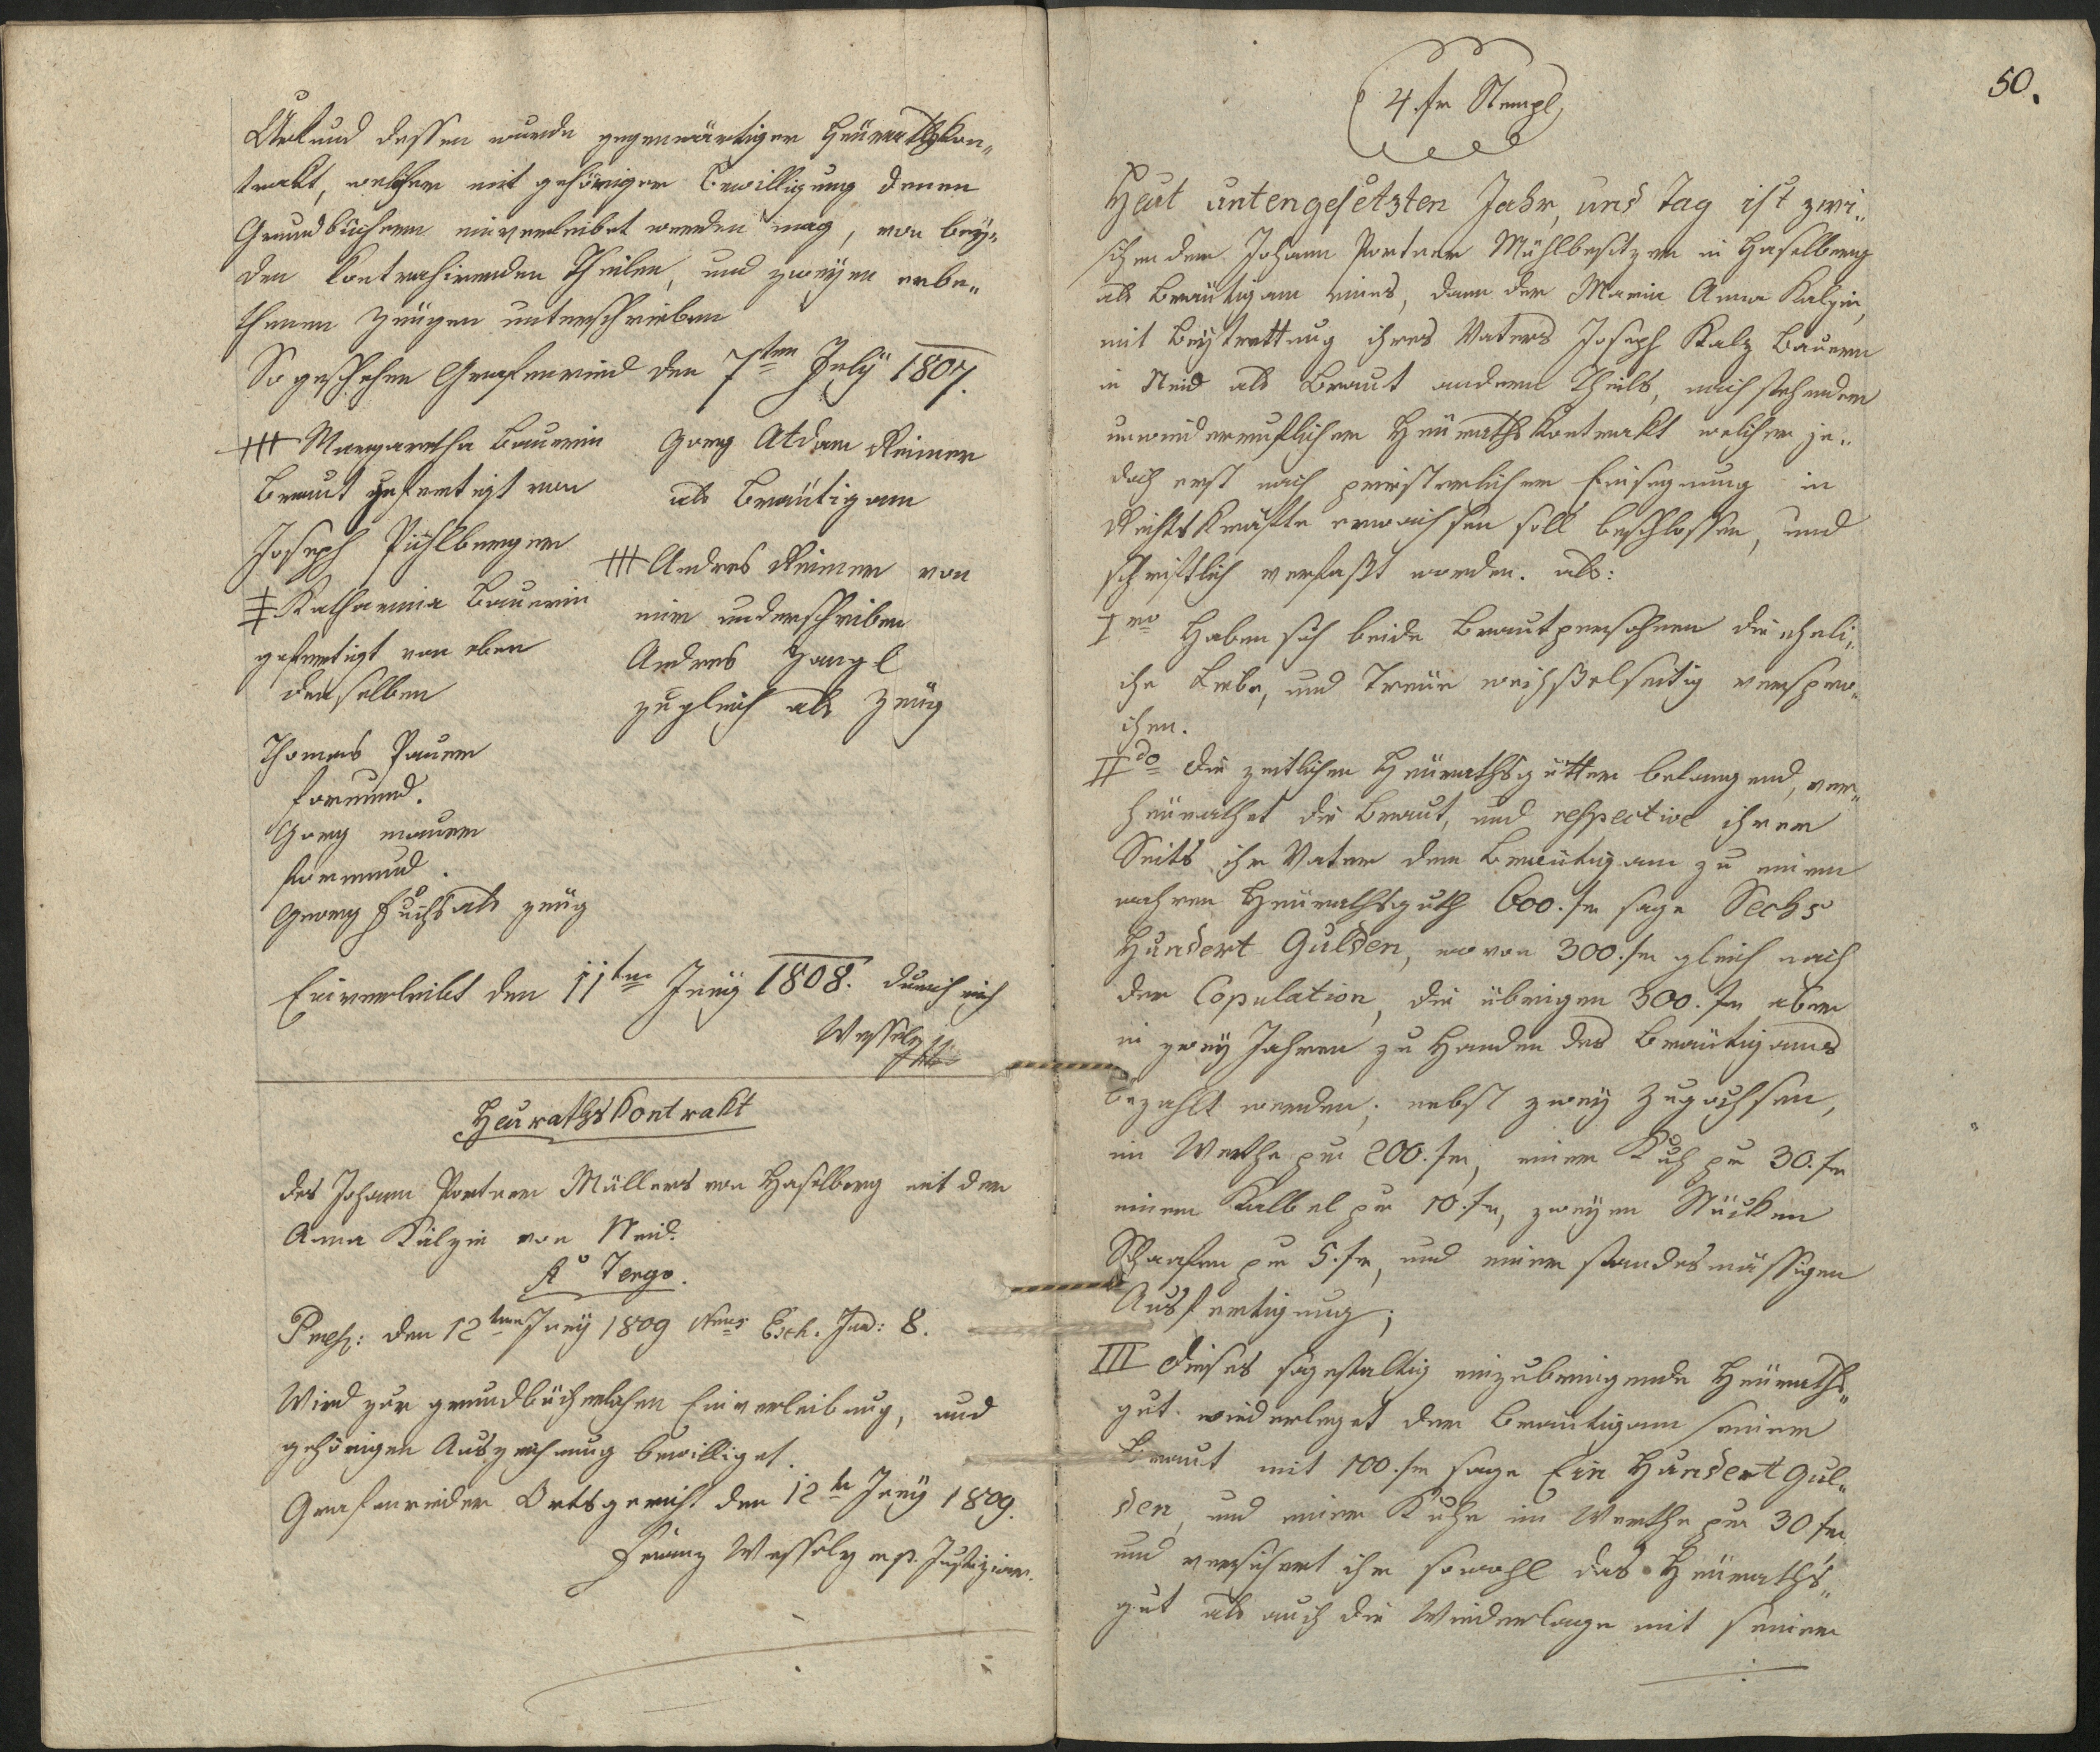 Urkund dessen wurde gegenwärtiger Heürathskon„
trakt, welcher mit gehöriger Bewilligung denen
Grundbüchern einverleibet werden mag, von bey„
den kontrahirenden Theilen, und zweyen erbe„
thenen Zeugen unterschrieben
So geschehen Grafenried den 7ten July 1807.
+++ Margaretha Bauerin
Braut gefertigt von
Joseph Pühlberger
‡ Katharina Bauerin
gefertigt von eben
denselben
Thomas Pauer
formund.
Georg mauer
formund.
Georg Fuchs als zeüg
Gorg Atdam Reimer
als Bräutigam
+++ Andres Reimer von
mir underschriben
Andres Zangl
zugleich als Zeüg
Einverleibt den 11ten Juny 1808. durch mich
Wessely
Heurathskontrakt
des Johann Portner Müllers von Haselberg mit der
Anna Kalzin von Neid.
A° Tergo.
Praes: den 12ten Juny 1809 Nrus Exh. Jud: 8.
Wird zur grundbücherlichen Einverleibung, und
gehörigen Auszeichnung bewilliget.
Grafenrieder Ortsgericht den 12ten Juny 1809.
Franz Wessely m.p. Justiziar.
50.
4. fr Stempl
Heut untengesetzten Jahr, und Tag ist zwi„
schen dem Johann Portner Mühlbesitzer in Haselberg
als Bräutigam eines, dann der Maria Anna Kalzin,
mit Beytrettung ihres Vaters Joseph Kalz Bauern
in Neid als Braut andern Theils, nachstehender
unwiderruflicher Heürathskontrakt welcher je„
doch erst nach priesterlicher Einsegnung in
Rechtskräfte erwachsen soll beschlossen, und
schriftlich verfaßt worden. als:
Imo Haben sich beide Brautpersohnen die eheli„
che Liebe, und Treüe wechselseitig verspro„
chen.
IIdo Die zeitlichen Heürathsgütter belangend, ver„
heürathet die Braut, und respective ihrer
Seits ihr Vater dem Bräutigam zu einem
wahren Heürathsguth 600. fr sage Sechs
Hundert Gulden, wovon 300. fr gleich nach
der Copulation, die übrigen 300. fr aber
in zwey Jahren zu Handen des Bräutigams
bezahlt werden; nebst zwey Zugochsen,
im Werthe per 200. fr, einer Kuh per 30. fr
einem Kalbel per 10. fr, zweyen Stücken
Schaafen per 5. fr, und einer standesmässigen
Ausfertigung;
III Dieses sogestaltig einzubringende Heüraths„
gut wiederleget der Bräutigam seiner
Braut mit 100. fr sage Ein Hundert Gul„
den, und einer Kuhe im Werthe per 30 fr.
und versichert ihr sowohl das Heüraths„
gut als auch die Wiederlage mit seinem